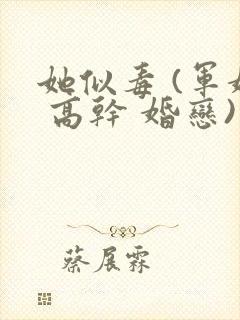 她似毒(軍婚
高幹 婚戀)
蔡展霖